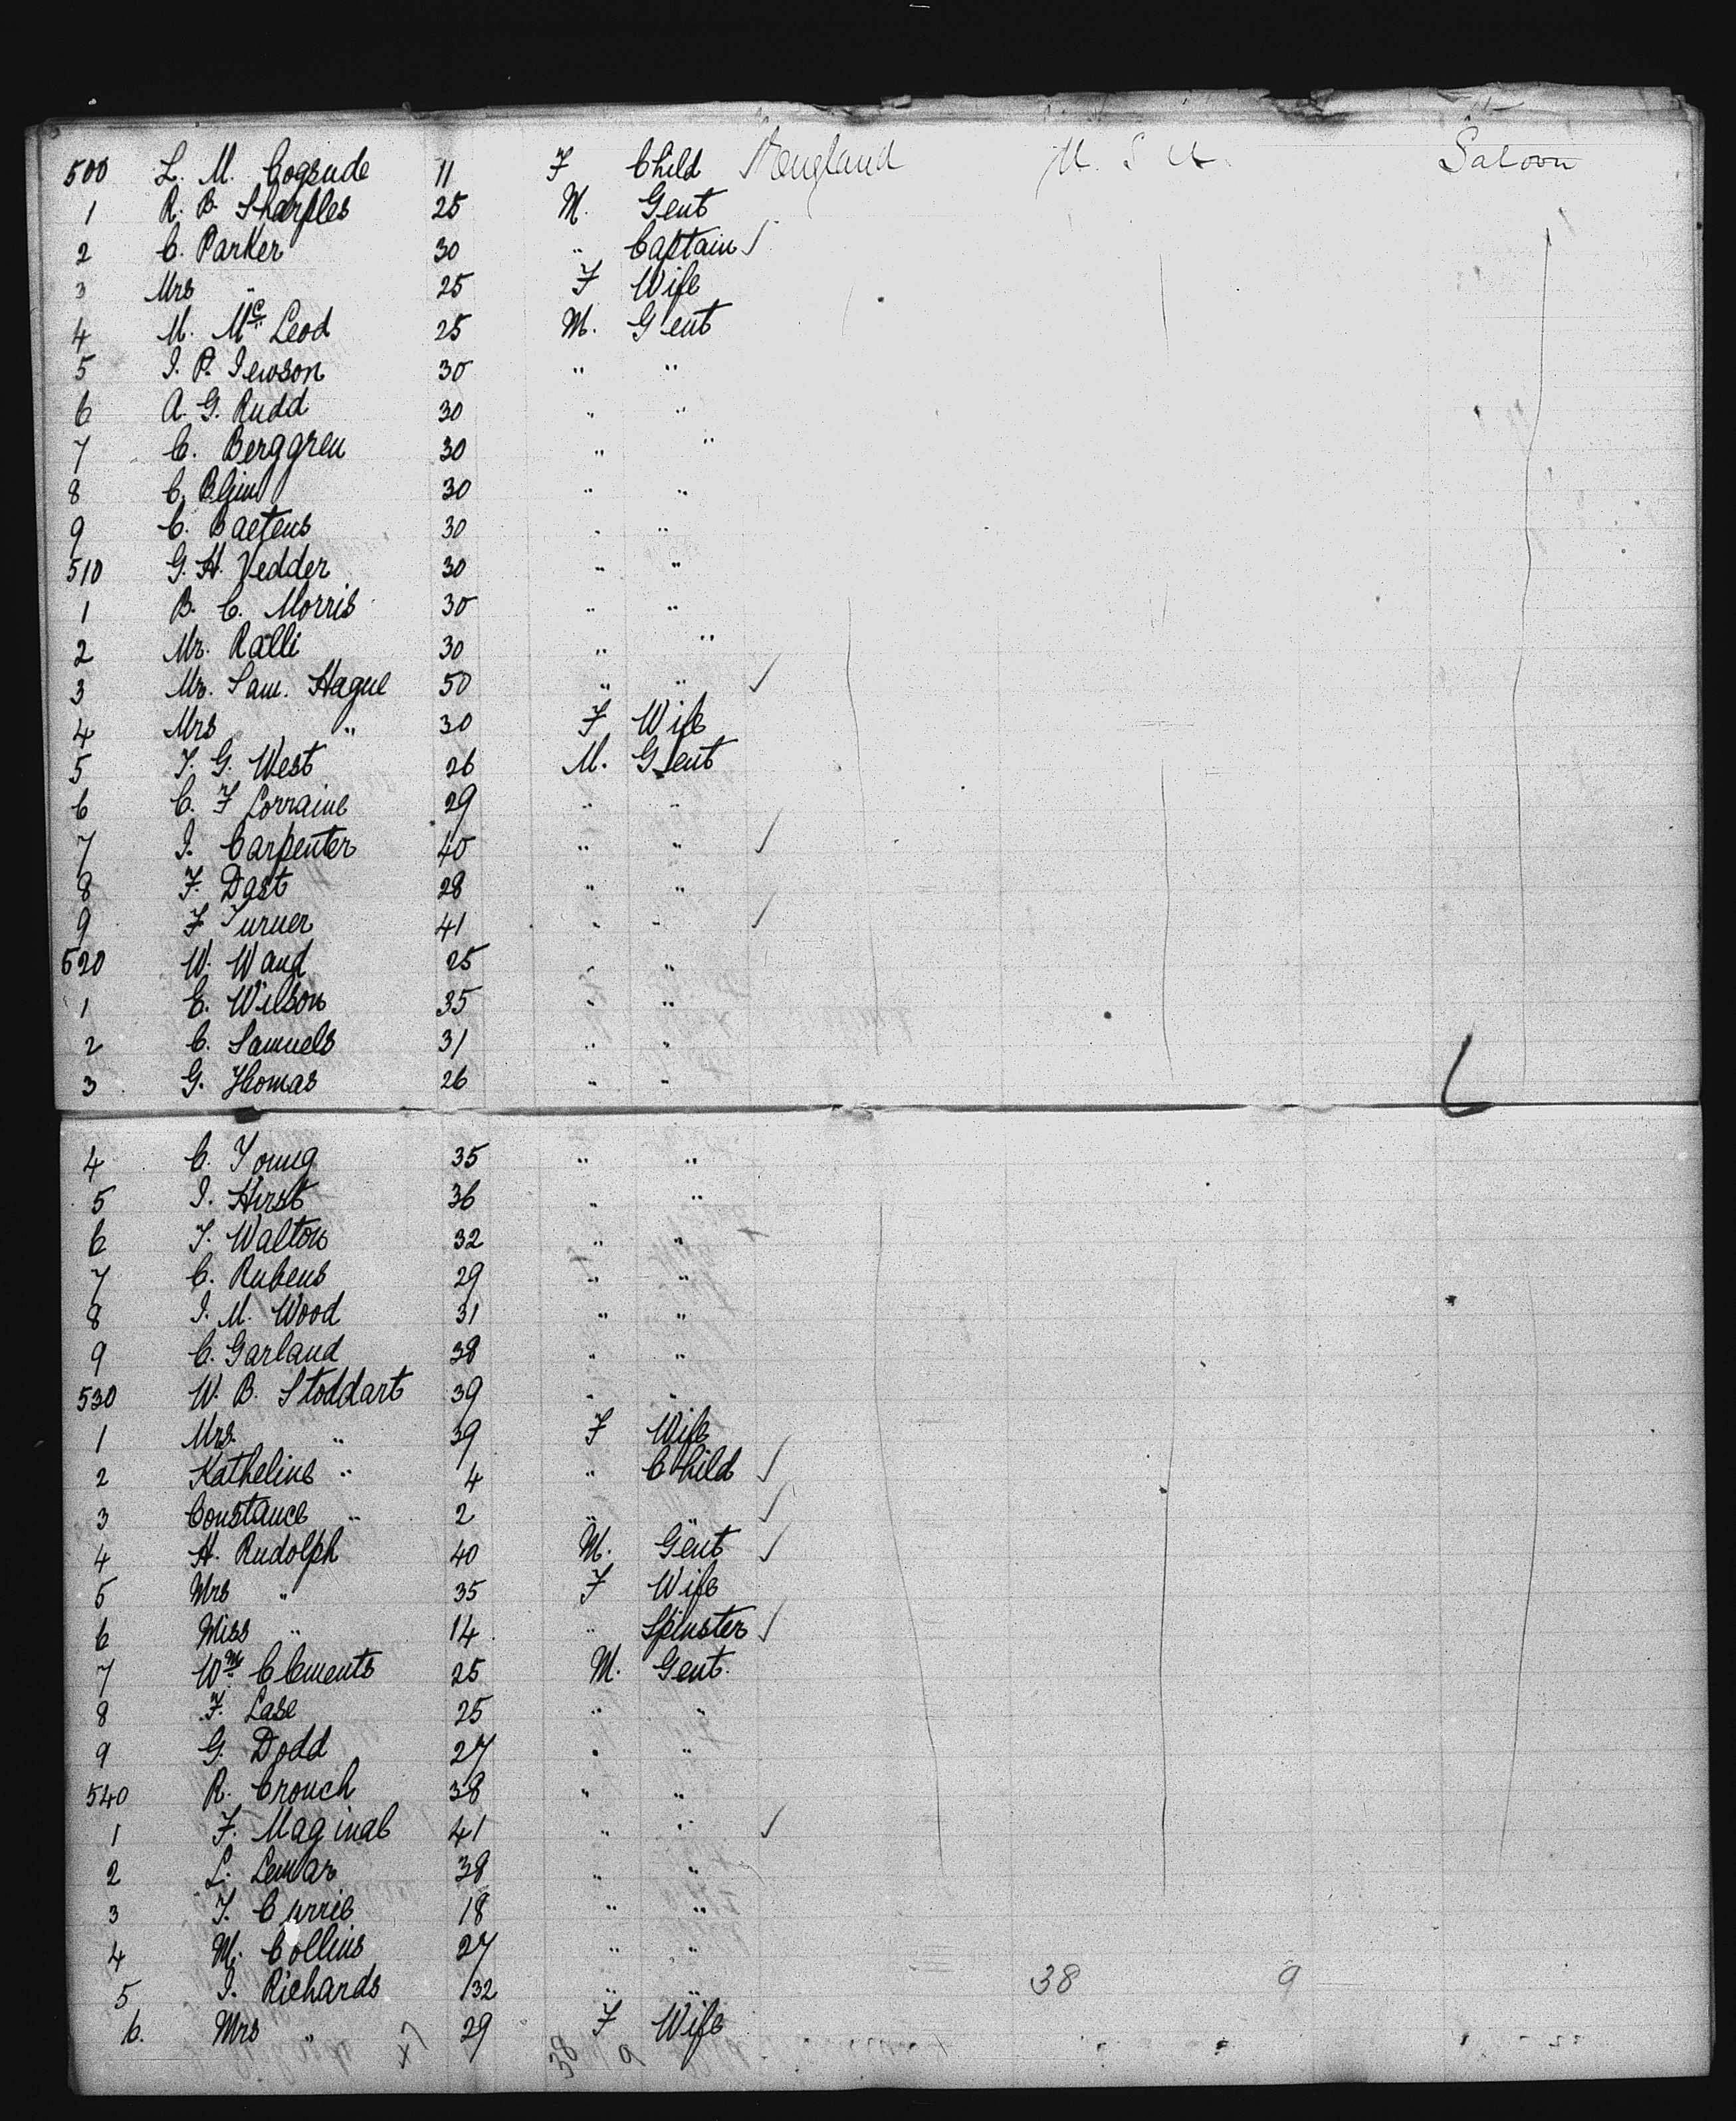 500 L. M. Cogsude 11 F Child England U. S. A. Saloon
1 R. B. Sharples 25 M. Gent
2 C. Parker 30 " Captain
3 Mrs " 25 F Wife
4 M. Mc Leod 25 M. Gent
5 J. P. Jewson 30 " "
6 A. G. Rudd 30 " "
7 C. Berggren 30 " "
8 C. Blim 30 " "
9 C. Baetens 30 " "
510 G. H. Vedder 30 " "
1 B. C. Morris 30 " "
2 Mr. Ralli 30 " "
3 Mr. Sam. Hague 50 " "
4 Mrs " 30 F Wife
5 T. G. West 26 M. Gent
6 C. F Lorraine 29 " "
7 J. Carpenter 40 " "
8 F. Dast 28 " "
9 F Turner 41 " "
520 W. Wand 25 " "
1 E. Wilson 35 " "
2 C. Samuels 31 " "
3 G. Thomas 26 " "
4 C. Young 35 " "
5 J. Hirst 36 " "
6 T. Walton 32 " "
7 C. Rubens 29 " "
8 J. M. Wood 31 " "
9 C. Garland 38 " "
530 W. B. Stoddart 39 " "
1 Mrs. " 39 F Wife
2 Katheline " 4 " Child
3 Constance " 2 " "
4 H. Rudolph 40 M. Gent
5 Mrs " 35 F Wife
6 Miss " 14 " Spinster
7 Wm Clements 25 M. Gent.
8 F. Case 25 " "
9 G. Dodd 27 " "
540 R. Crouch 38 " "
1 F. Maginal 41 " "
2 L. Lemar 38 " "
3 T. Currie 18 " "
4 M. Collins 27 " "
5 J. Richards 32 " " 38 9
6. Mrs " 29 F Wife
x7 38 9